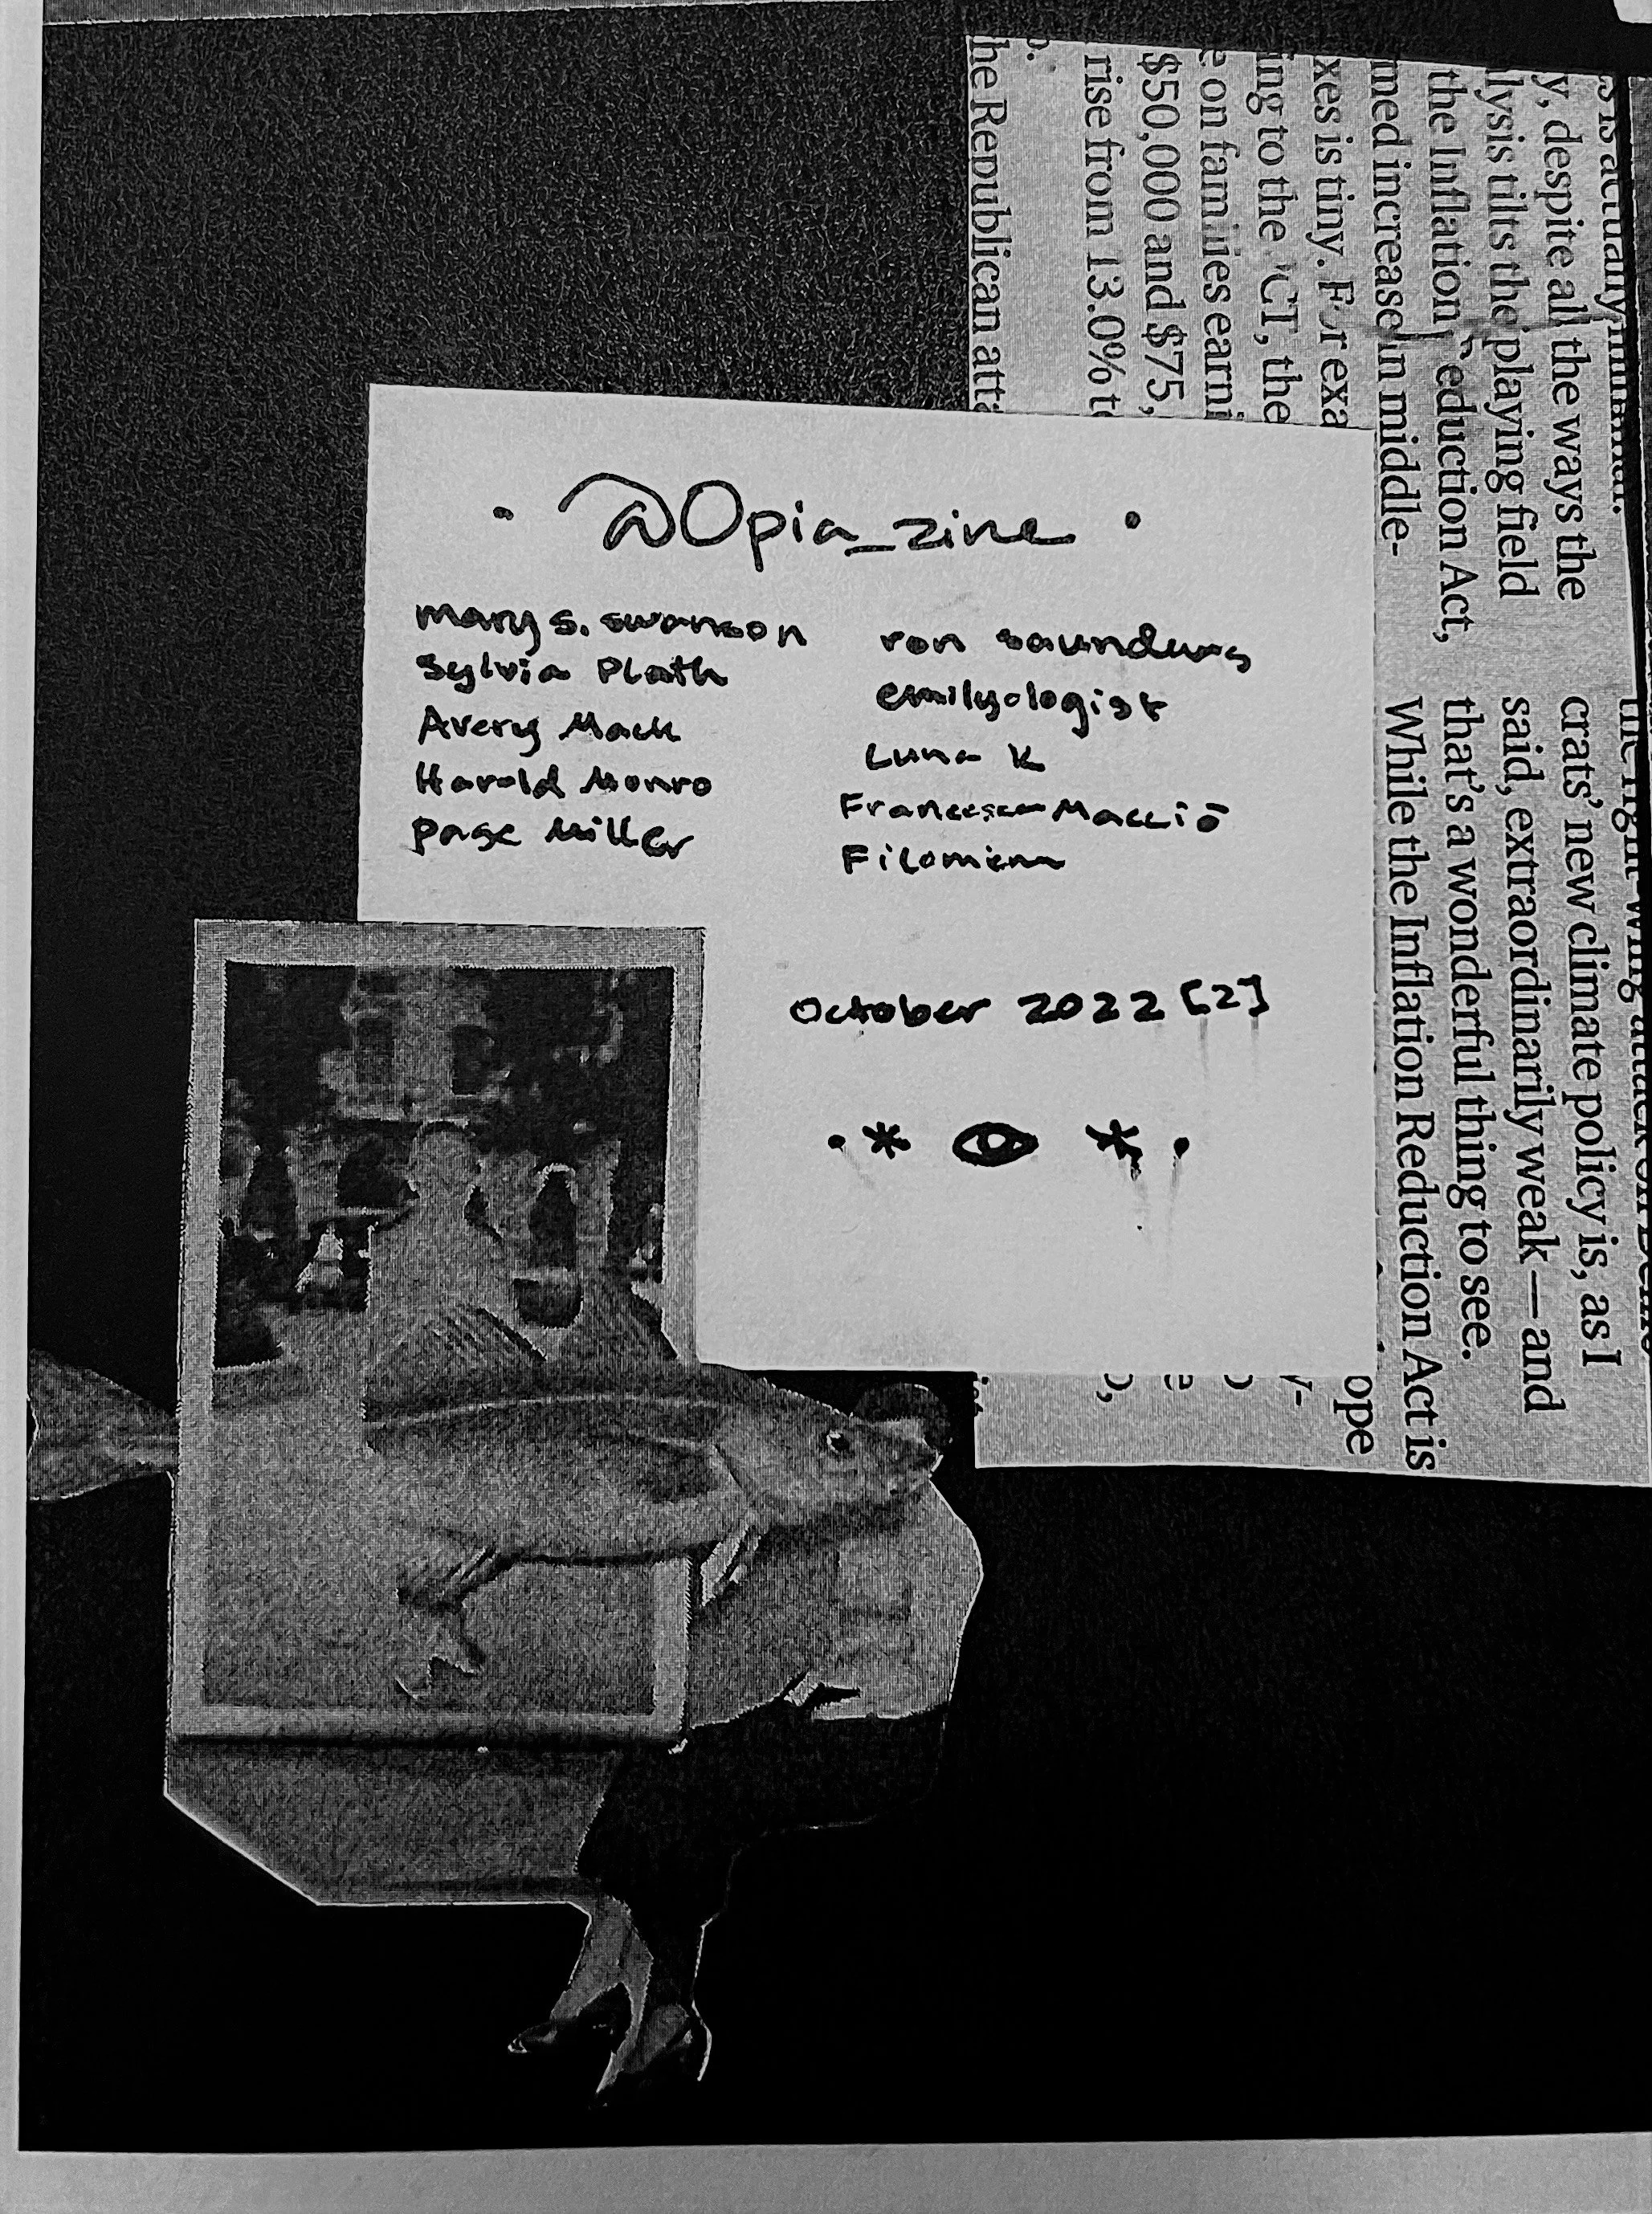 @Opia_zine
mary s. swanson
Sylvia Plath
Avery Mack
Harold Monro
Page Miller
ron saunders
emilyologist
Luna K
Francesca Macciō
Filomena
October 2022 [2]
s is actually minimal.
y, despite all the ways the
lysis tilts the playing field
the Inflation Reduction Act,
med increase in middle-
xes is tiny. For exa
ing to the JCT, the
e on families earni
$50,000 and $75,
rise from 13.0% to
he Republican atta
the right-wing attack on
crats' new climate policy is, as I
said, extraordinarily weak — and
that's a wonderful thing to see.
While the Inflation Reduction Act is
ope